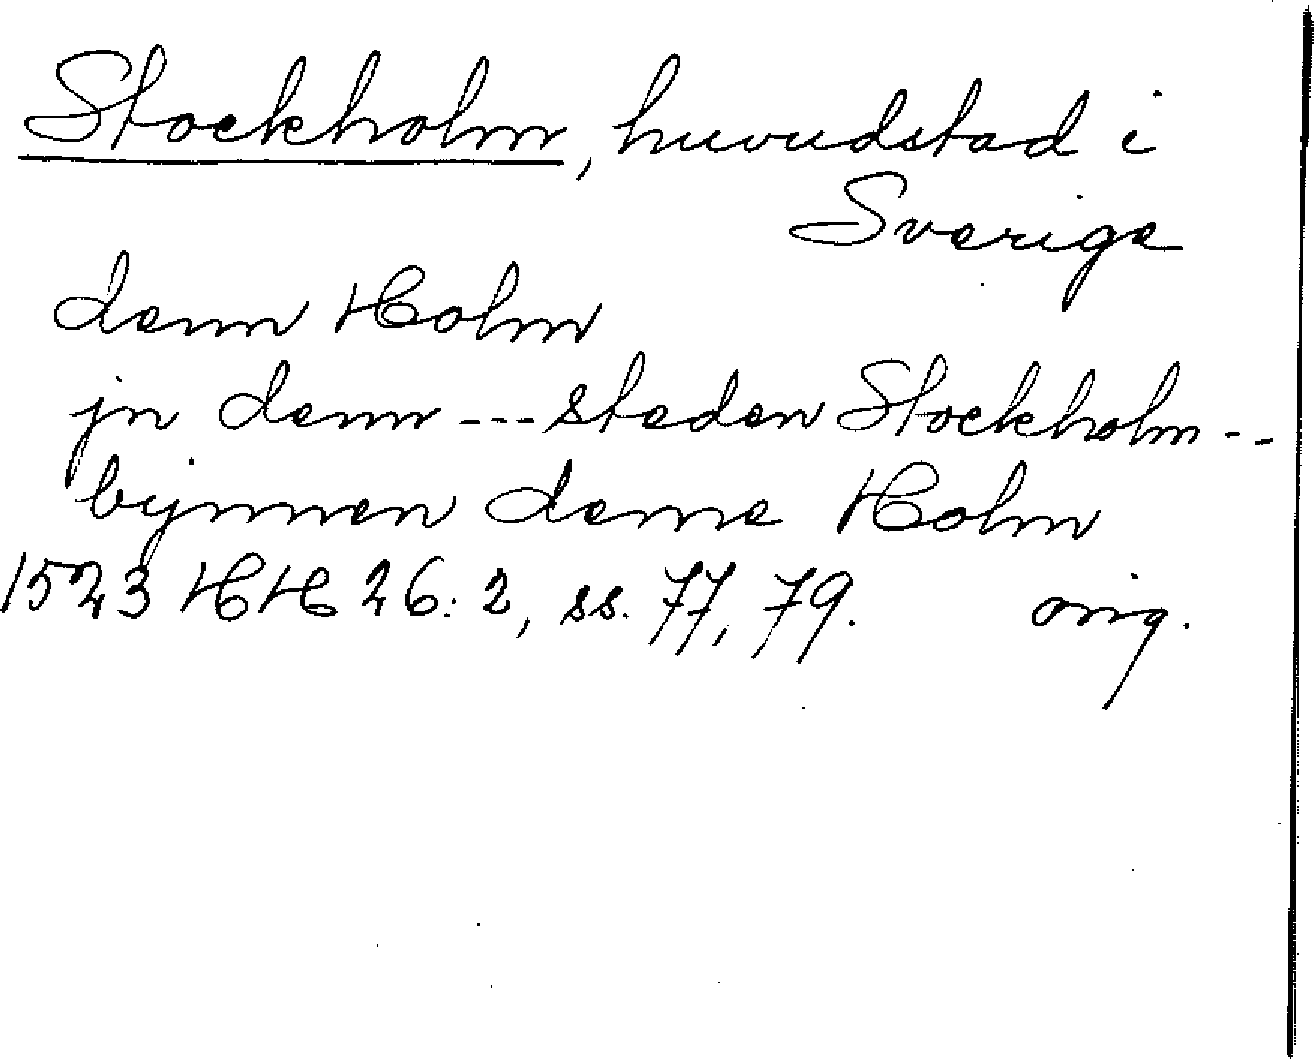 Stockholm, huvudstad i
Sverige
denn Holm
jn denn --- steden Stockholm --
bynnen deme Holm
1523 HH 26:2, ss. 77, 79. orig.